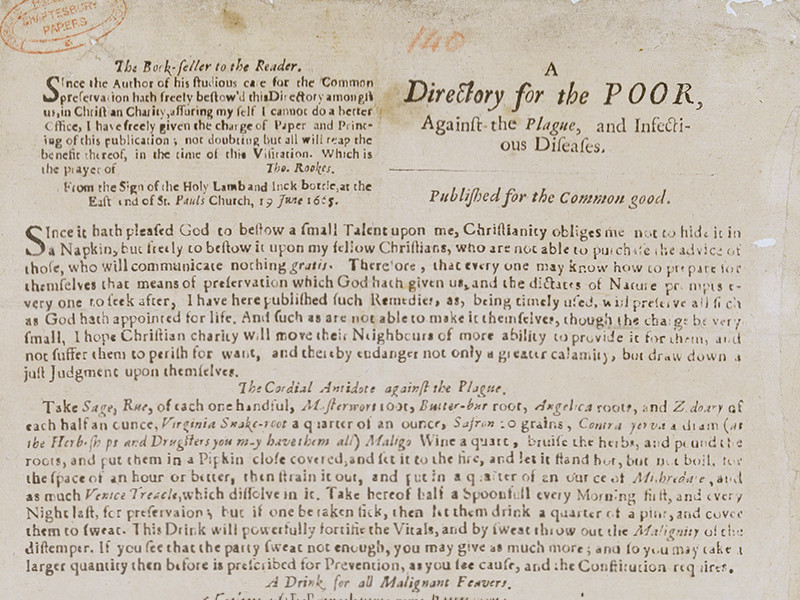 SHAFTESBURY
PAPERS
140
The Book-seller to the Reader.
SInce the Author of his studious care for the Common
preservation hath freely bestow'd this Directory amongst
us, in Christian Charity, assuring my self I cannot do a better
Office, I have freely given the charge of Paper and Print-
ing of this publication; not doubting but all will reap the
benefit thereof, in the time of this Visitation. Which is
the prayer of Tho. Rookes.
From the Sign of the Holy Lamb and Inck bottle, at the
East end of St. Pauls Church, 19 June 1665.
A
Directory for the POOR,
Against the Plague, and Infecti-
ous Diseases.
Published for the Common good.
SInce it hath pleased God to bestow a small Talent upon me, Christianity obliges me not to hide it in
a Napkin, but freely to bestow it upon my fellow Christians, who are not able to purchase the advice of
those, who will communicate nothing gratis. Therefore, that every one may know how to prepare for
themselves that means of preservation which God hath given us, and the dictates of Nature prompts e-
very one to seek after, I have here published such Remedies, as, being timely used, will preserve all such
as God hath appointed for life. And such as are not able to make it themselves, though the charge be very
small, I hope Christian charity will move their Neighbours of more ability to provide it for them, and
not suffer them to perish for want, and thereby endanger not only a greater calamity, but draw down a
just Judgment upon themselves.
The Cordial Antidote against the Plague.
Take Sage, Rue, of each one handful, Masterwort root, Butter-bur root, Angelica roots, and Zedoary of
each half an ounce, Virginia Snake-root a quarter of an ounce, Safron 20 grains, Contra yerva a dram (at
the Herb-shops and Drugsters you may have them all) Malago Wine a quart, bruise the herbs, and pound the
roots, and put them in a Pipkin close covered, and set it to the fire, and let it stand hot, but not boil, for
the space of an hour or better, then strain it out, and put in a quarter of an ounce of Mithredate, and
as much Venice Treacle, which dissolve in it. Take hereof half a Spoonfull every Morning first, and every
Night last, for preservaion; but if one be taken sick, then let them drink a quarter of a pint, and cover
them to sweat. This Drink will powerfully fortifie the Vitals, and by sweat throw out the Malignity of the
distemper. If you see that the party sweat not enough, you may give as much more; and so you may take a
larger quantity then before is prescribed for Prevention, as you see cause, and the Constitution requires.
A Drink for all Malignant Feavers.